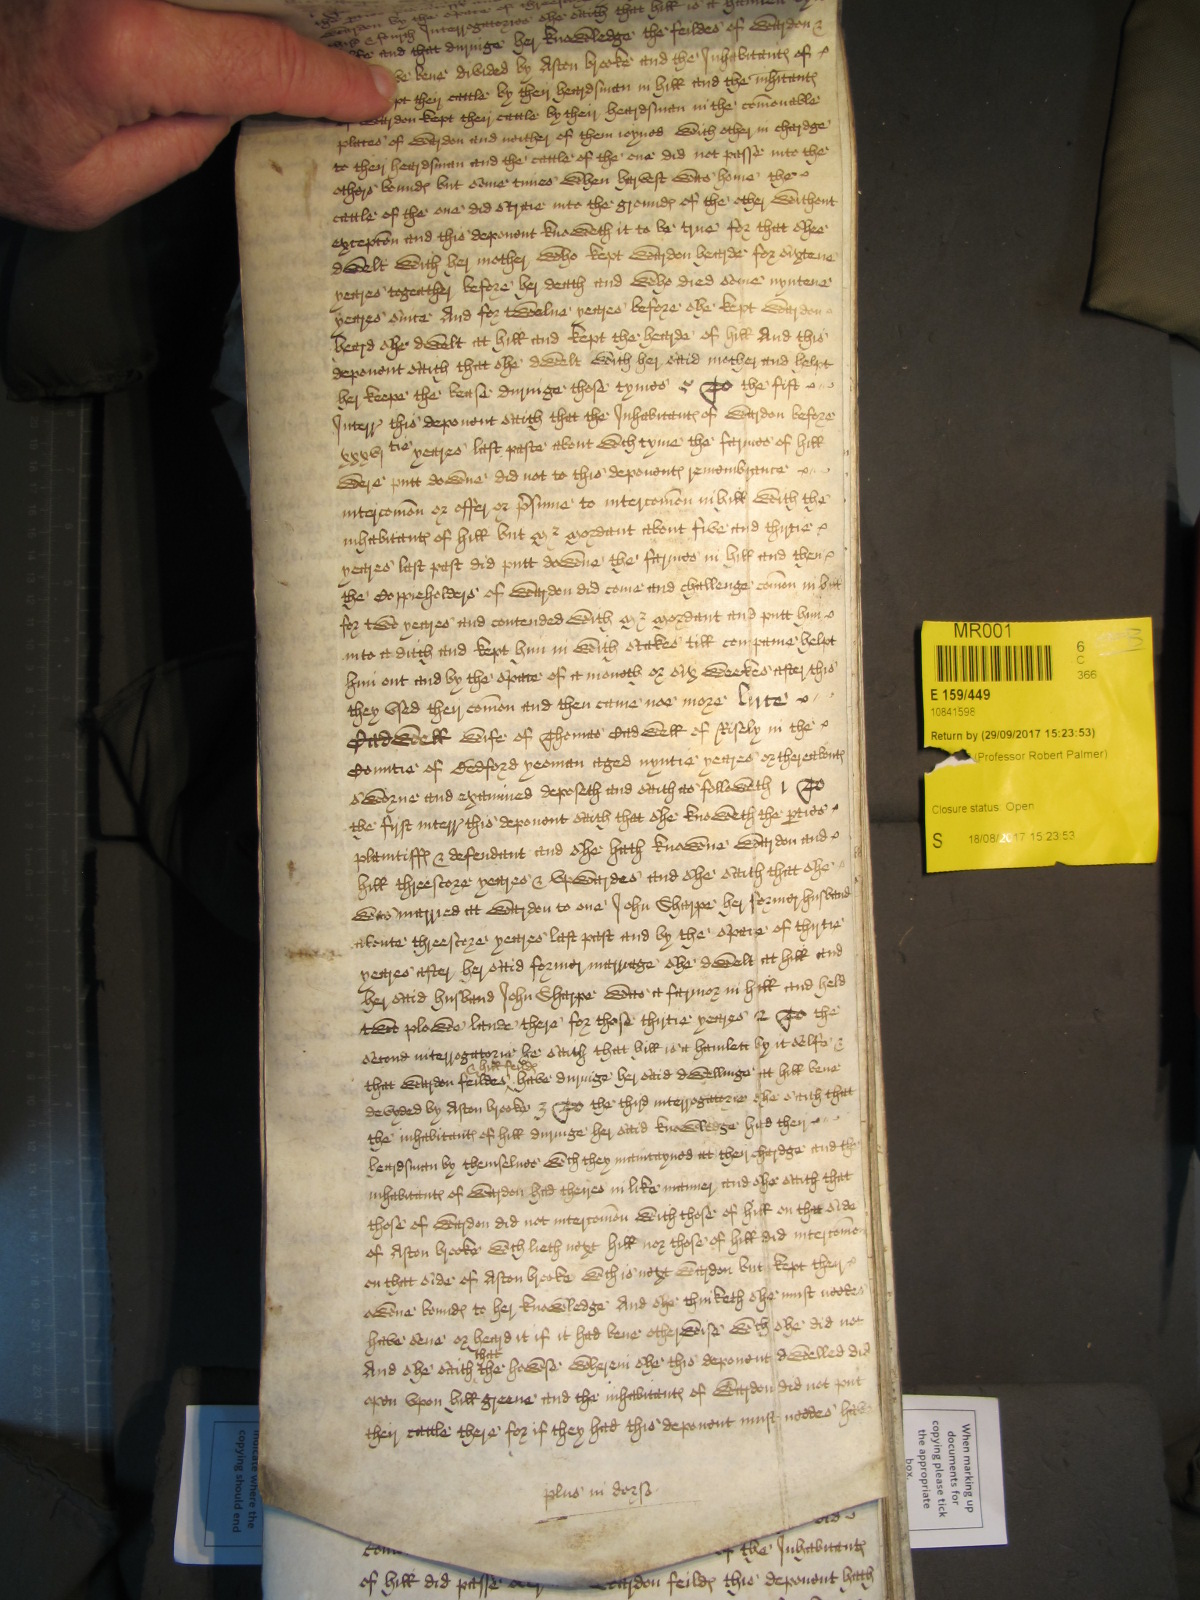 Wardon by the space of
third & fourth Interrogatories she saith that hill is a hamlett by
and that duringe her knowledge the feildes of Wardon &
bene divided by Aston brooke and the Inhabitantes of
kept their cattle by their heardsman in hill and the inhitantes
of Wardon kept their cattle by their heardsman in the comonable
places of Wardon and neither of them ioyned with other in chardge
to their heardsman and the cattle of the one did not passe into the
others boundes but some times when harvest was home the
cattle of the one did straie into the groundes of the other without
exception and this deponent knoweth it to be true for that shee
dwelt with her mother who kept Wardon hearde for sixtene
yeares togeather before her death and who died some nyntene
yeares since And for twelue yeares before she kept Wardon
heard she dwelt at hill and kept the hearde of hill And this
deponent saith that she dwelt with her said mother and helpt
her keepe the bease duringe those tymes To the fift
Interr this deponent saith that the Inhabitantes of Wardon before
xxxvj tie yeares last paste about wch tyme the farmes of hill
were putt downe did not to this deponentes remembrance
intercomon or offer or psume to intercomon in hill with the
inhabitantes of hill but Mr Mordant about five and thirtie
yeares last past did putt downe the farmes in hill and then
the Coppieholders of Wardon did come and challenge comon in hill
for two yeares and contended with Mr Mordant and putt him
into a ditch and kept him in with stakes till companie helpt
him out and by the space of a month or six weekes after this
they vsed their comon and then came noe more Luce
Cadwell wife of Thomas Cadwell of Risely in the
Countie of Bedford yeoman aged nyntie yeares or thereaboutes
sworne and examined deposeth and saith as followeth To
the first interr this deponent saith that she knoweth the pties
plaintiffes & defendant and she hath knowne Wardon and
hill threescore yeares & vpwardes and she saith that she
was married at Wardon to one John Sharpe her former husband
aboute threescore yeares last past and by the space of thirtie
yeares after her said former marriage she dwelt at hill and
her said husband John Sharpe was a farmor in hill and held
two plowe lande there for those thirtie yeares To the
second interrogatorie he saith that hill is a hamlett by it selfe &
& hill feildes
that Wardon feildes have duringe her said dwellinge at hill bene
devyded by Aston brooke To the third interrogatorie she saith that
the inhabitantes of hill duringe her said knowledge had their
heardsman by themselues wch they maintayned at their chardge and the
inhabitantes of Wardon had theires in like manner and she saith that
those of Wardon did not intercomon with those of hill on that side
of Aston brooke wch lieth next hill nor those of hill did intercomon
on that side of Aston brooke wch is next Wardon but kept their
owne boundes to her knowledge And she thinketh she must needes
have sene or heard it if it had bene otherwise wch she did not
that
And she saith the howse wherein she this deponent dwelled did
open vpon hill greene and the inhabitantes of Wardon did not put
their cattle there for if they had this deponent must needes have
plus in dorso
of the Inhabitantes
of hill did passe Wardon feildes this deponent hath
MR001
6
C
366
E 159/449
10841598
Return by (29/09/2017 15:23:53)
(Professor Robert Palmer)
Closure status: Open
S 18/08/2017 15:23:53
When marking up
documents for
copying please tick
the appropriate
box.
indicate where the
copying should end